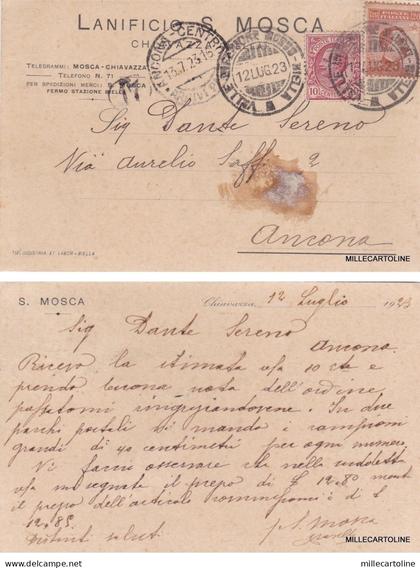 LANIFICIO S. MOSCA
CHIAVAZZA
TELEGRAMMI: MOSCA-CHIAVAZZA
TELEFONO N. 71
PER SPEDIZIONI MERCI: S. MOSCA
FERMO STAZIONE BIELLA
12 LUG 23
10
Sig Dante Sereno
Via Aurelio Saffi 2
Ancona
MILLECARTOLINE
S. MOSCA
Chiavazza, 12 Luglio 1923
Sig Dante Sereno
Ancona
Ricevo la stimata v/a 10 cte e
prendo buona nota dell'ordine
passatomi ringraziandovene. In due
pacchi postali vi mando i campioni
grandi di 40 centimetri per ogni numero
Vi faccio osservare che nella suddetta
v/a mi segnate il prezzo di £ 12.80 ment
il prezzo dell'articolo è di £
12.85
Distinti saluti
S. Mosca
MILLECARTOLINE